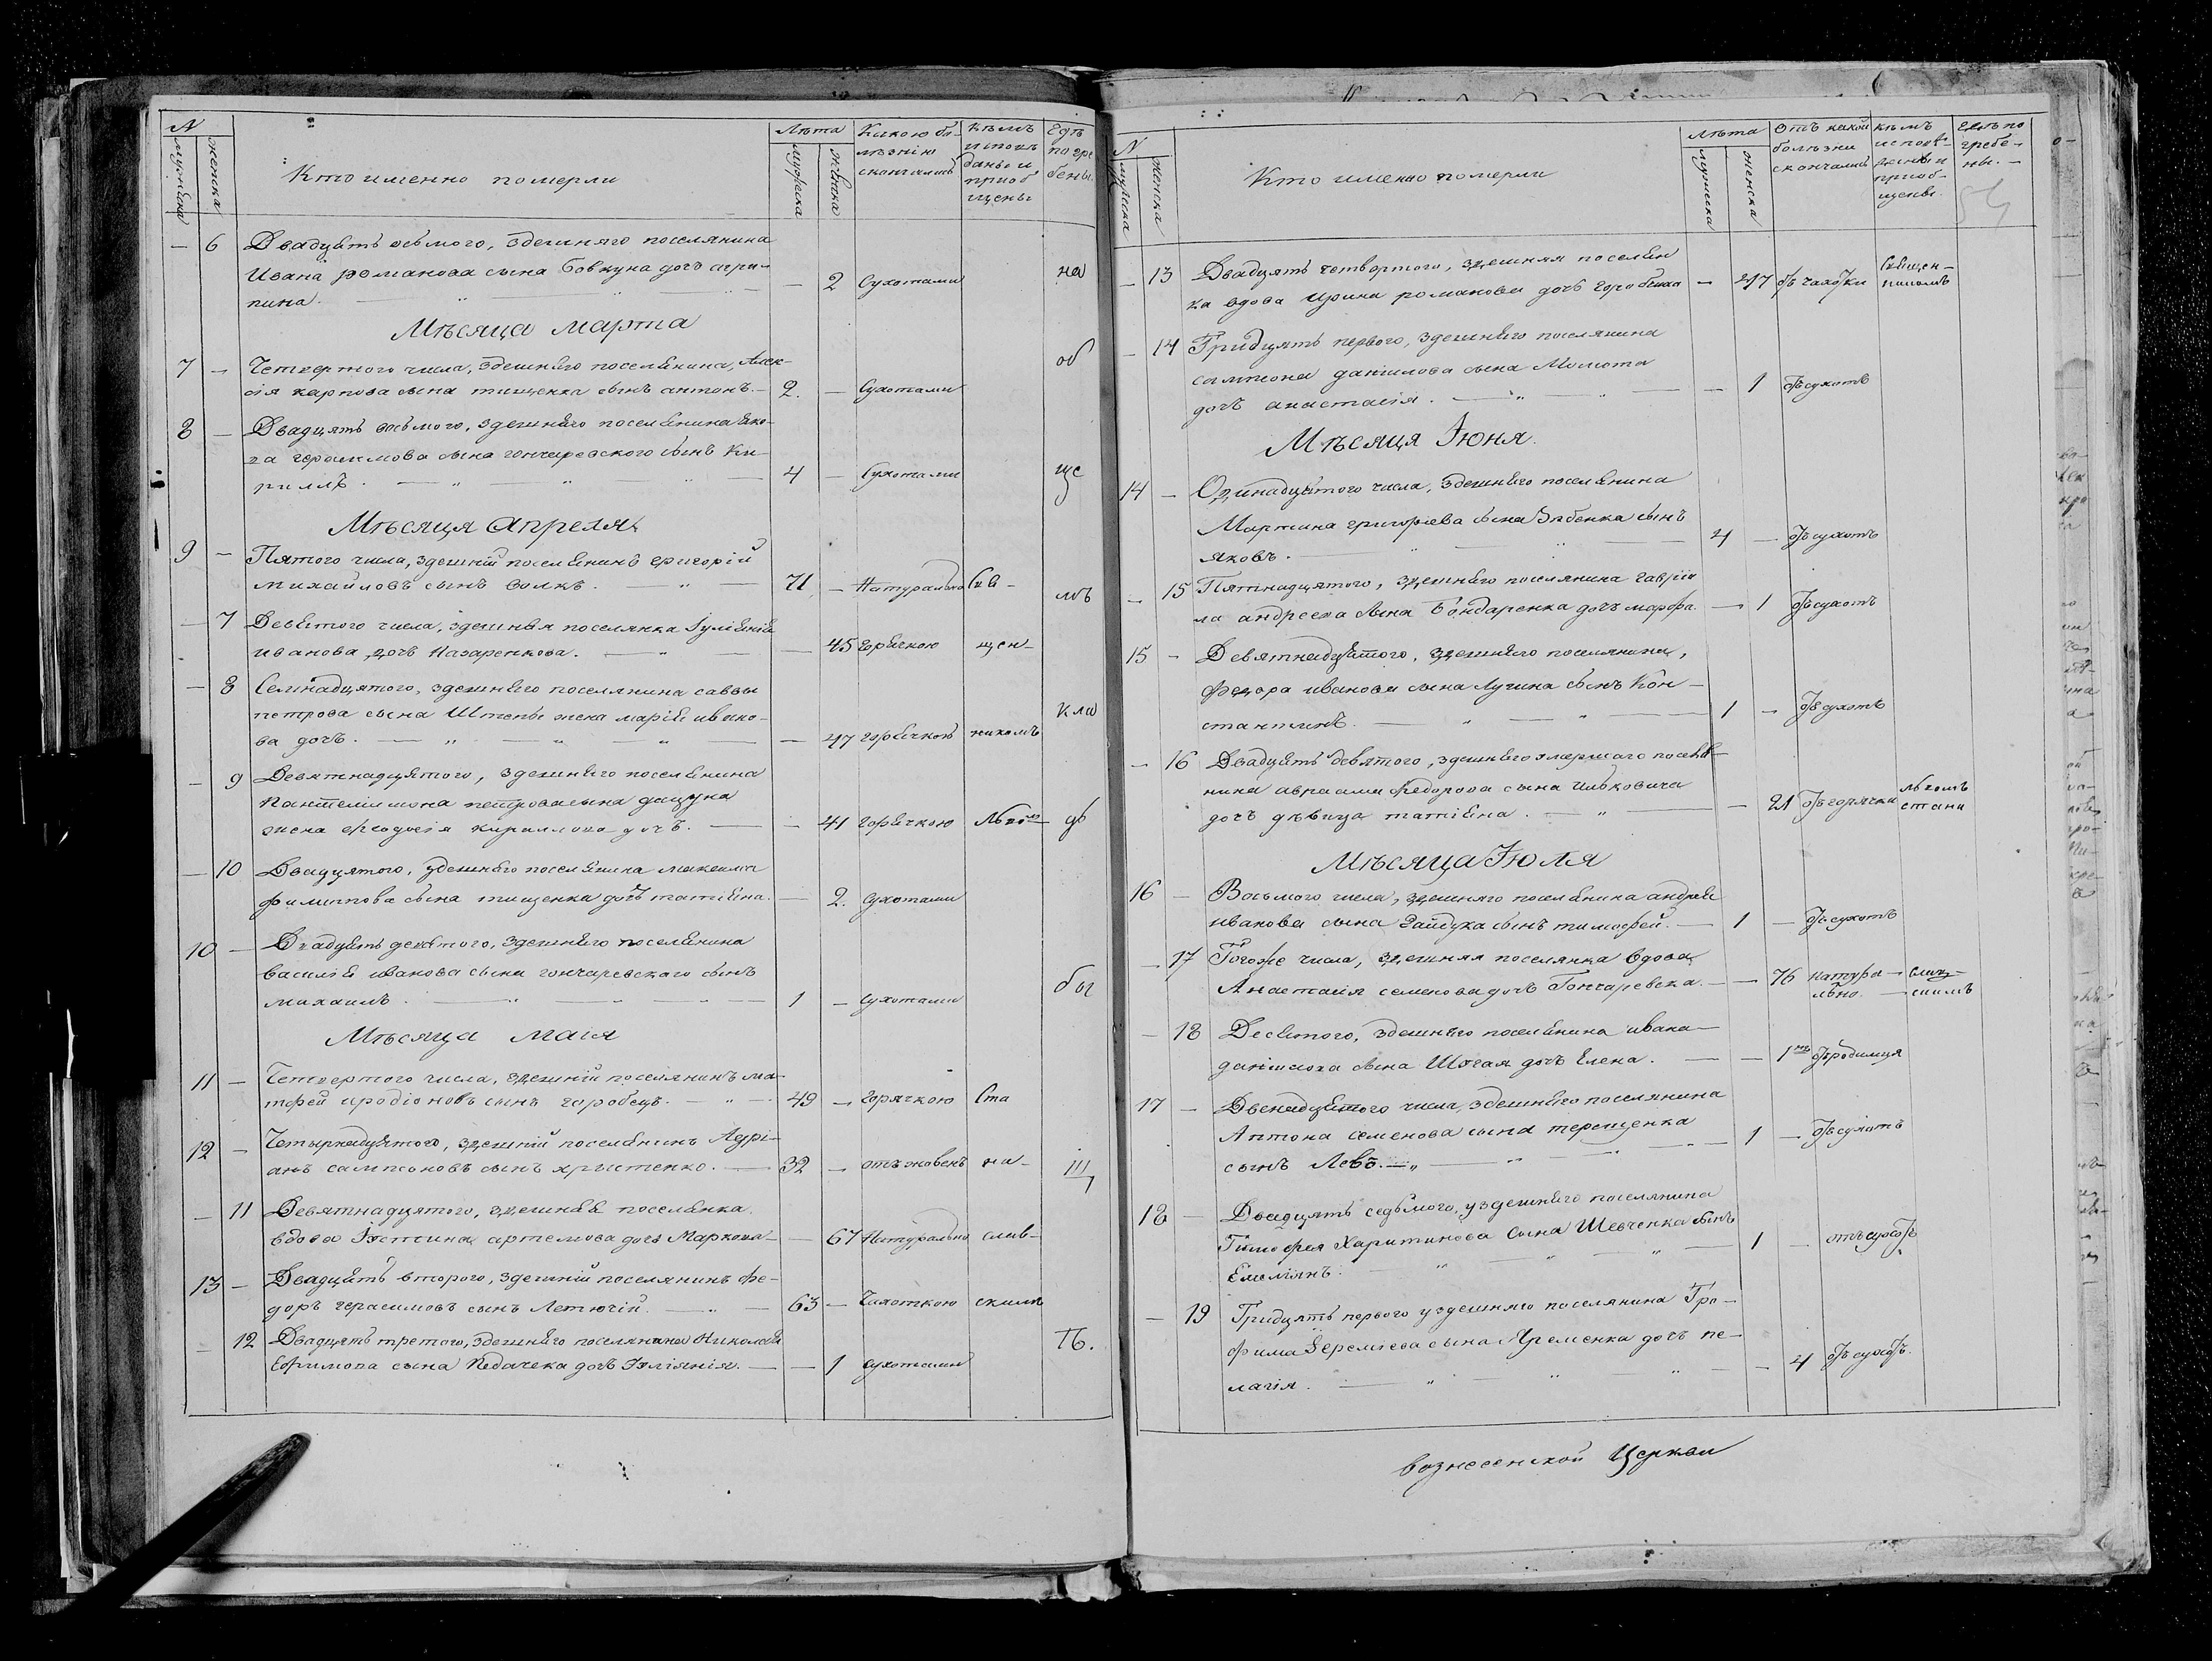 N
мужеска
женска
Кто именно померли
Лѣта
мужеска
женска
Какою бо-
лѣзнію
скончались
кѣмъ
исповѣ
даны и
приоб
щены
Гдѣ
погре
бены
- 6 Двадцять осьмого, здешняго поселянина
Ивана романова сына Бовкуна дочъ агри-
пина. - 2 Сухотами на
Мѣсяца марта
7 - Четвертого числа, здешняго поселянина, Алек-
сія карпова сына тищенка сынъ антонъ. 2. - Сухотами об
8 - Двадцять восьмого, здешняго поселянина яко-
ва герасимова сына гончаревского сынъ Ки-
риллъ. 4 - Сухотами ще
Мѣсяця Апреля
9 - Пятого числа, здешній поселянинъ григорій
михайловъ сынъ волкъ. 71 - Натурально Свя- мъ
- 7 Девятого числа, здешняя поселянка Іуліянія
иванова дочъ Назаренкова. - 45 Горячкою щен-
- 8 Семнадцятого, здешняго поселянина саввы
петрова сына Штепы жена марія ивано-
ва дочъ. - 47 горячкою никомъ кла
- 9 Девятнадцятого, здешняго поселянина
Пантелимона петрова сына дацуна
жена феодосія кириллова дочъ. - 41 горячкою дб
- 10 Двадцятого, здешняго поселянина максима
филиппова сына тищенка дочъ татіяна. - 2. сухотами
10 - Двадцять девятого, здешняго поселянина
василія иванова сына гончаревскаго сынъ
михаилъ. 1 - сухотами
Мѣсяца маія
11 - Четвертого числа, здешній поселянинъ ма-
тфей иродіоновъ сынъ горобецъ. 49 - горячкою Ста
12 - Четырнадцятого, здешній поселянинъ Адрі-
анъ сампсоновъ сынъ христенко. 32 - на-
- 11 Девятнадцятого, здешняя поселянка
вдова Іустина артемова дочъ Маркова - 67 Натурально слав-
13 - Двадцять второго, здешній поселянинъ фе-
доръ герасимовъ сынъ Летючій. 63 - Чахоткою скимъ
- 12 Двадцять третого, здешняго поселянина Николая
Ефимова сына Педачека дочъ Іуліянія. - 1 сухотами ть.
N
мужеска
женска
Кто именно померли
Лѣта
мужеска
женска
Отъ какой
болѣзни
скончались
кѣмъ
исповѣ-
даны и
приоб-
щены.
Гдѣ по
гребе-
ны.
54
- 13 Двадцять четвертого, здешняя поселян
ка вдова Ирина романова дочъ горобцова - 47 отъ чахотки Священ-
никомъ
- 14 Тридцять первого, здешняго поселянина
сампсона даніилова сына Момота
дочъ анастасія. - 1 отъ сухотъ
Мѣсяця Іюня.
14 - Одинадцятого числа, здешняго поселянина
Мартина григоріева сына Зябенка сынъ
яковъ. 4 - отъ сухотъ
- 15 Пятнадцятого, здешняго поселянина гаврiи
ла андреева сына Бондаренка дочъ марфа. - 1 отъ сухотъ
15 - Девятнадцятого, здешняго поселянина,
федора иванова сына Лучина сынъ Кон-
стантинъ. 1 - отъ сухотъ
- 16 Двадцять девятого, здешняго умершаго поселя-
нина авраама федорова сына Ильковича
дочъ дѣвица татіяна. - 21 отъ горячки
Мѣсяца Іюля
16 - Восьмого числа, здешняго поселянина андрея
иванова сына Гайдука сынъ тимофей. 1 - отъ сухотъ
- 17 Тогоже числа, здешняя поселянка вдова
Анастасія семенова дочъ Гончаревска. - 76 натура-
льно.
- 18 Десятого, здешняго поселянина ивана
даніилова сына Шогая дочъ Елена. - 1 отъ родимця
17 - Двенадцятого числа, здешняго поселянина
Антона семенова сына терещенка
сынъ Левъ. 1 - отъ сухотъ
18 - Двадцять седьмого, уздешняго поселянина
Тимофея Харитинова сына Шевченка сынъ
Емеліянъ. 1 - отъ сухотъ
- 19 Тридцять первого уздешняго поселянина Тро-
фима Іеремѣева сына Яременка дочъ пе-
лагія. - 4 отъ сухотъ.
Вознесенской Церкви